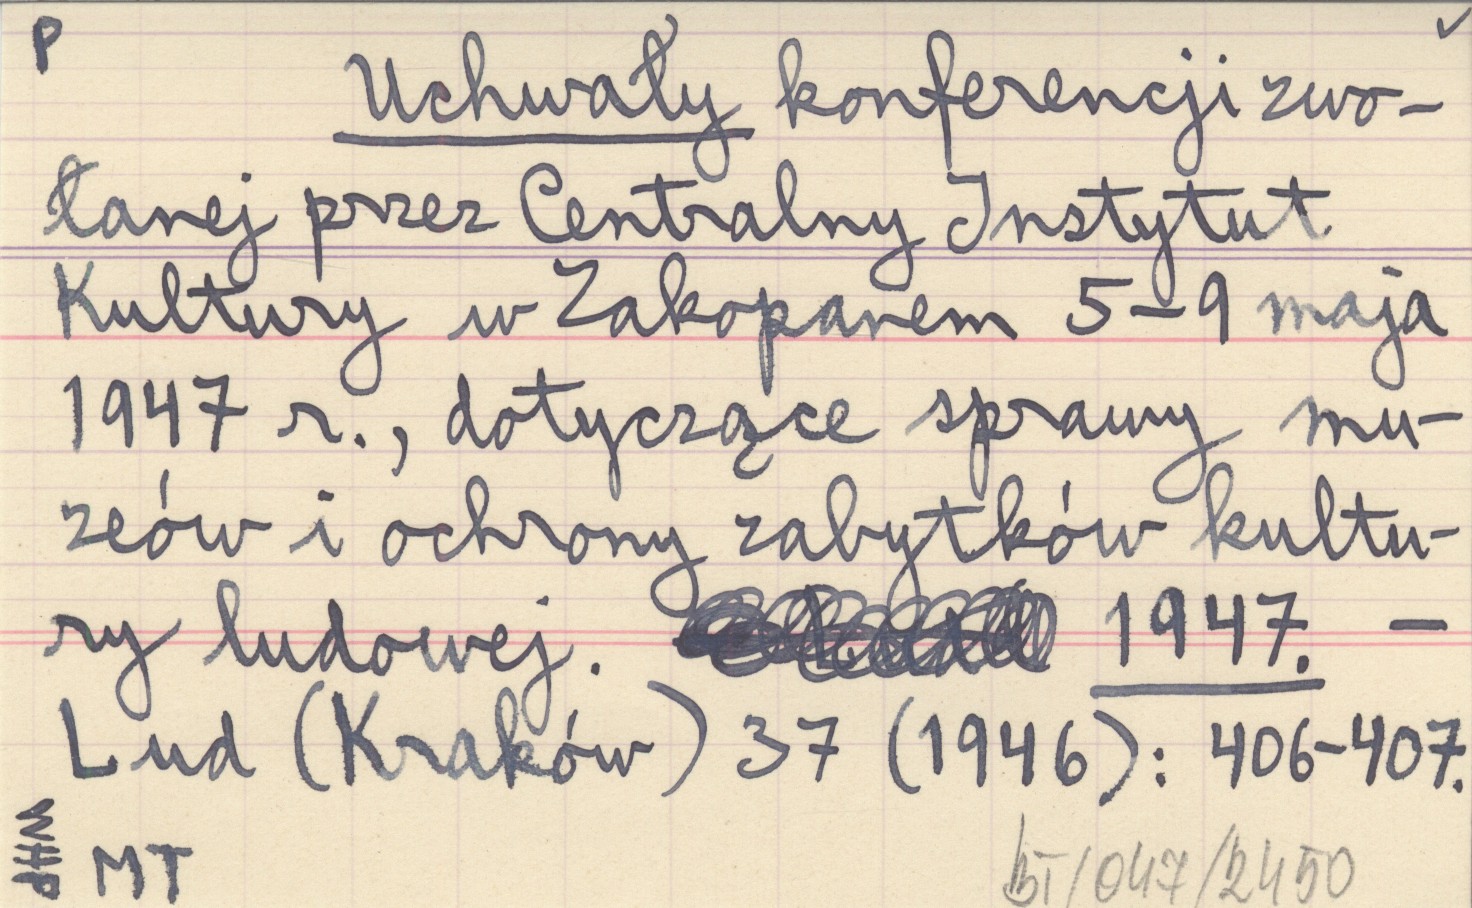 P
Uchwały konferencji zwo-
łanej przez Centralny Instytut
Kultury w Zakopanem 5-9 maja
1947 r., dotyczące sprawy mu-
zeów i ochrony zabytków kultu-
ry ludowej. 1947. -
Lud (Kraków) 37 (1946): 406-407.
WHP
MT
/047/2450